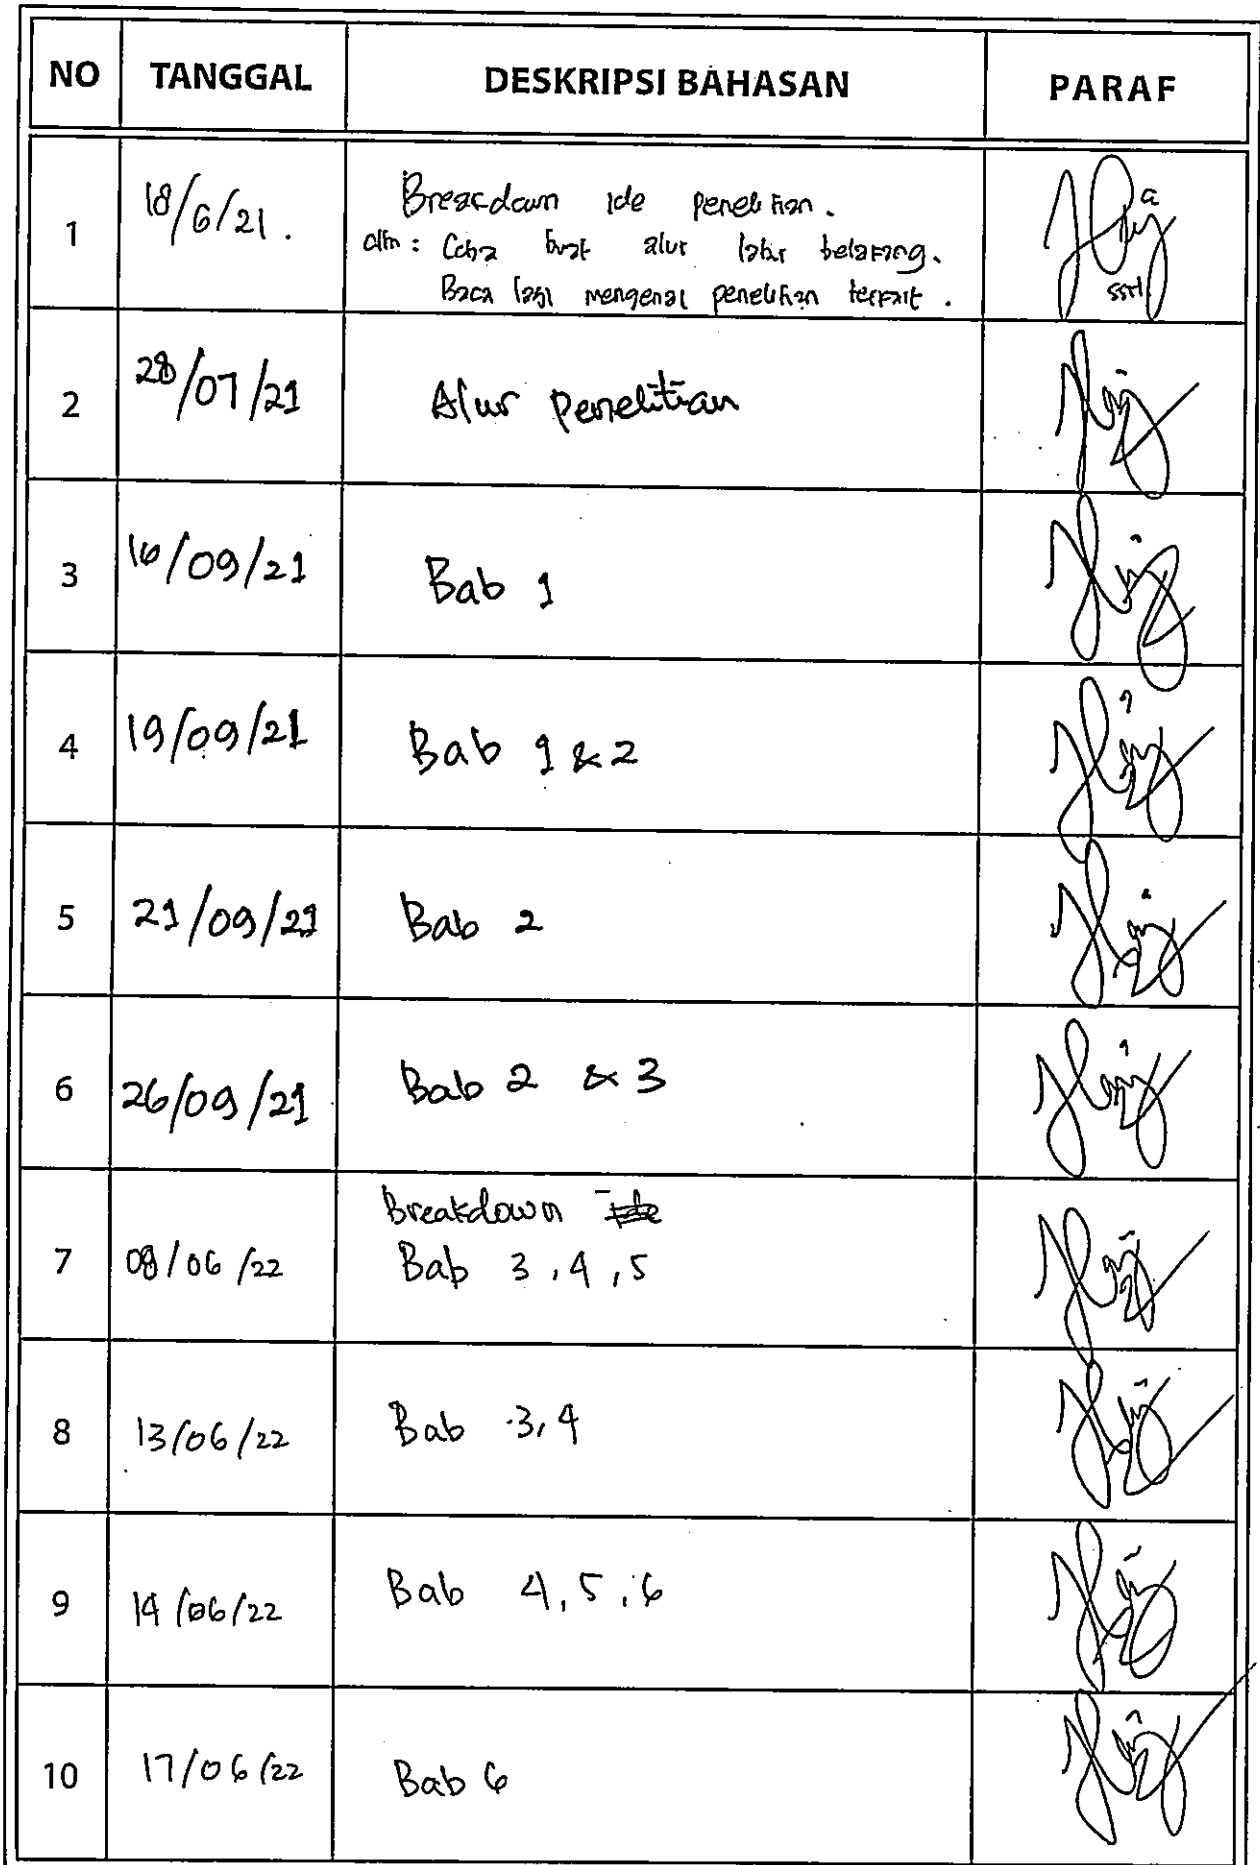 NO TANGGAL DESKRIPSI BAHASAN PARAF
1 18/6/21. Breakdown ide penelitian.
Coba buat alur latar belakang.
Baca lagi mengenai penelitian terkait.
2 28/07/21 Alur penelitian
3 16/09/21 Bab 1
4 19/09/21 Bab 1 & 2
5 21/09/21 Bab 2
6 26/09/21 Bab 2 & 3
7 08/06/22 Breakdown
Bab 3, 4, 5
8 13/06/22 Bab 3, 4
9 14/06/22 Bab 4, 5, 6
10 17/06/22 Bab 6